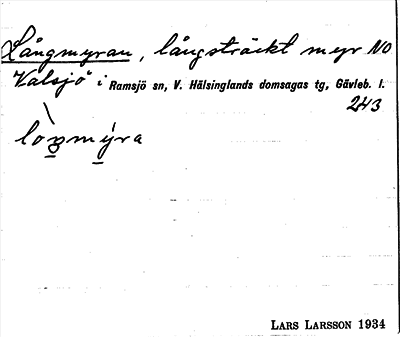 Långmyran, långsträckt myr NO
Valsjö i Ramsjö sn, V. Hälsinglands domsagas tg, Gävleb. l.
243
loŋmýra
LARS LARSSON 1934